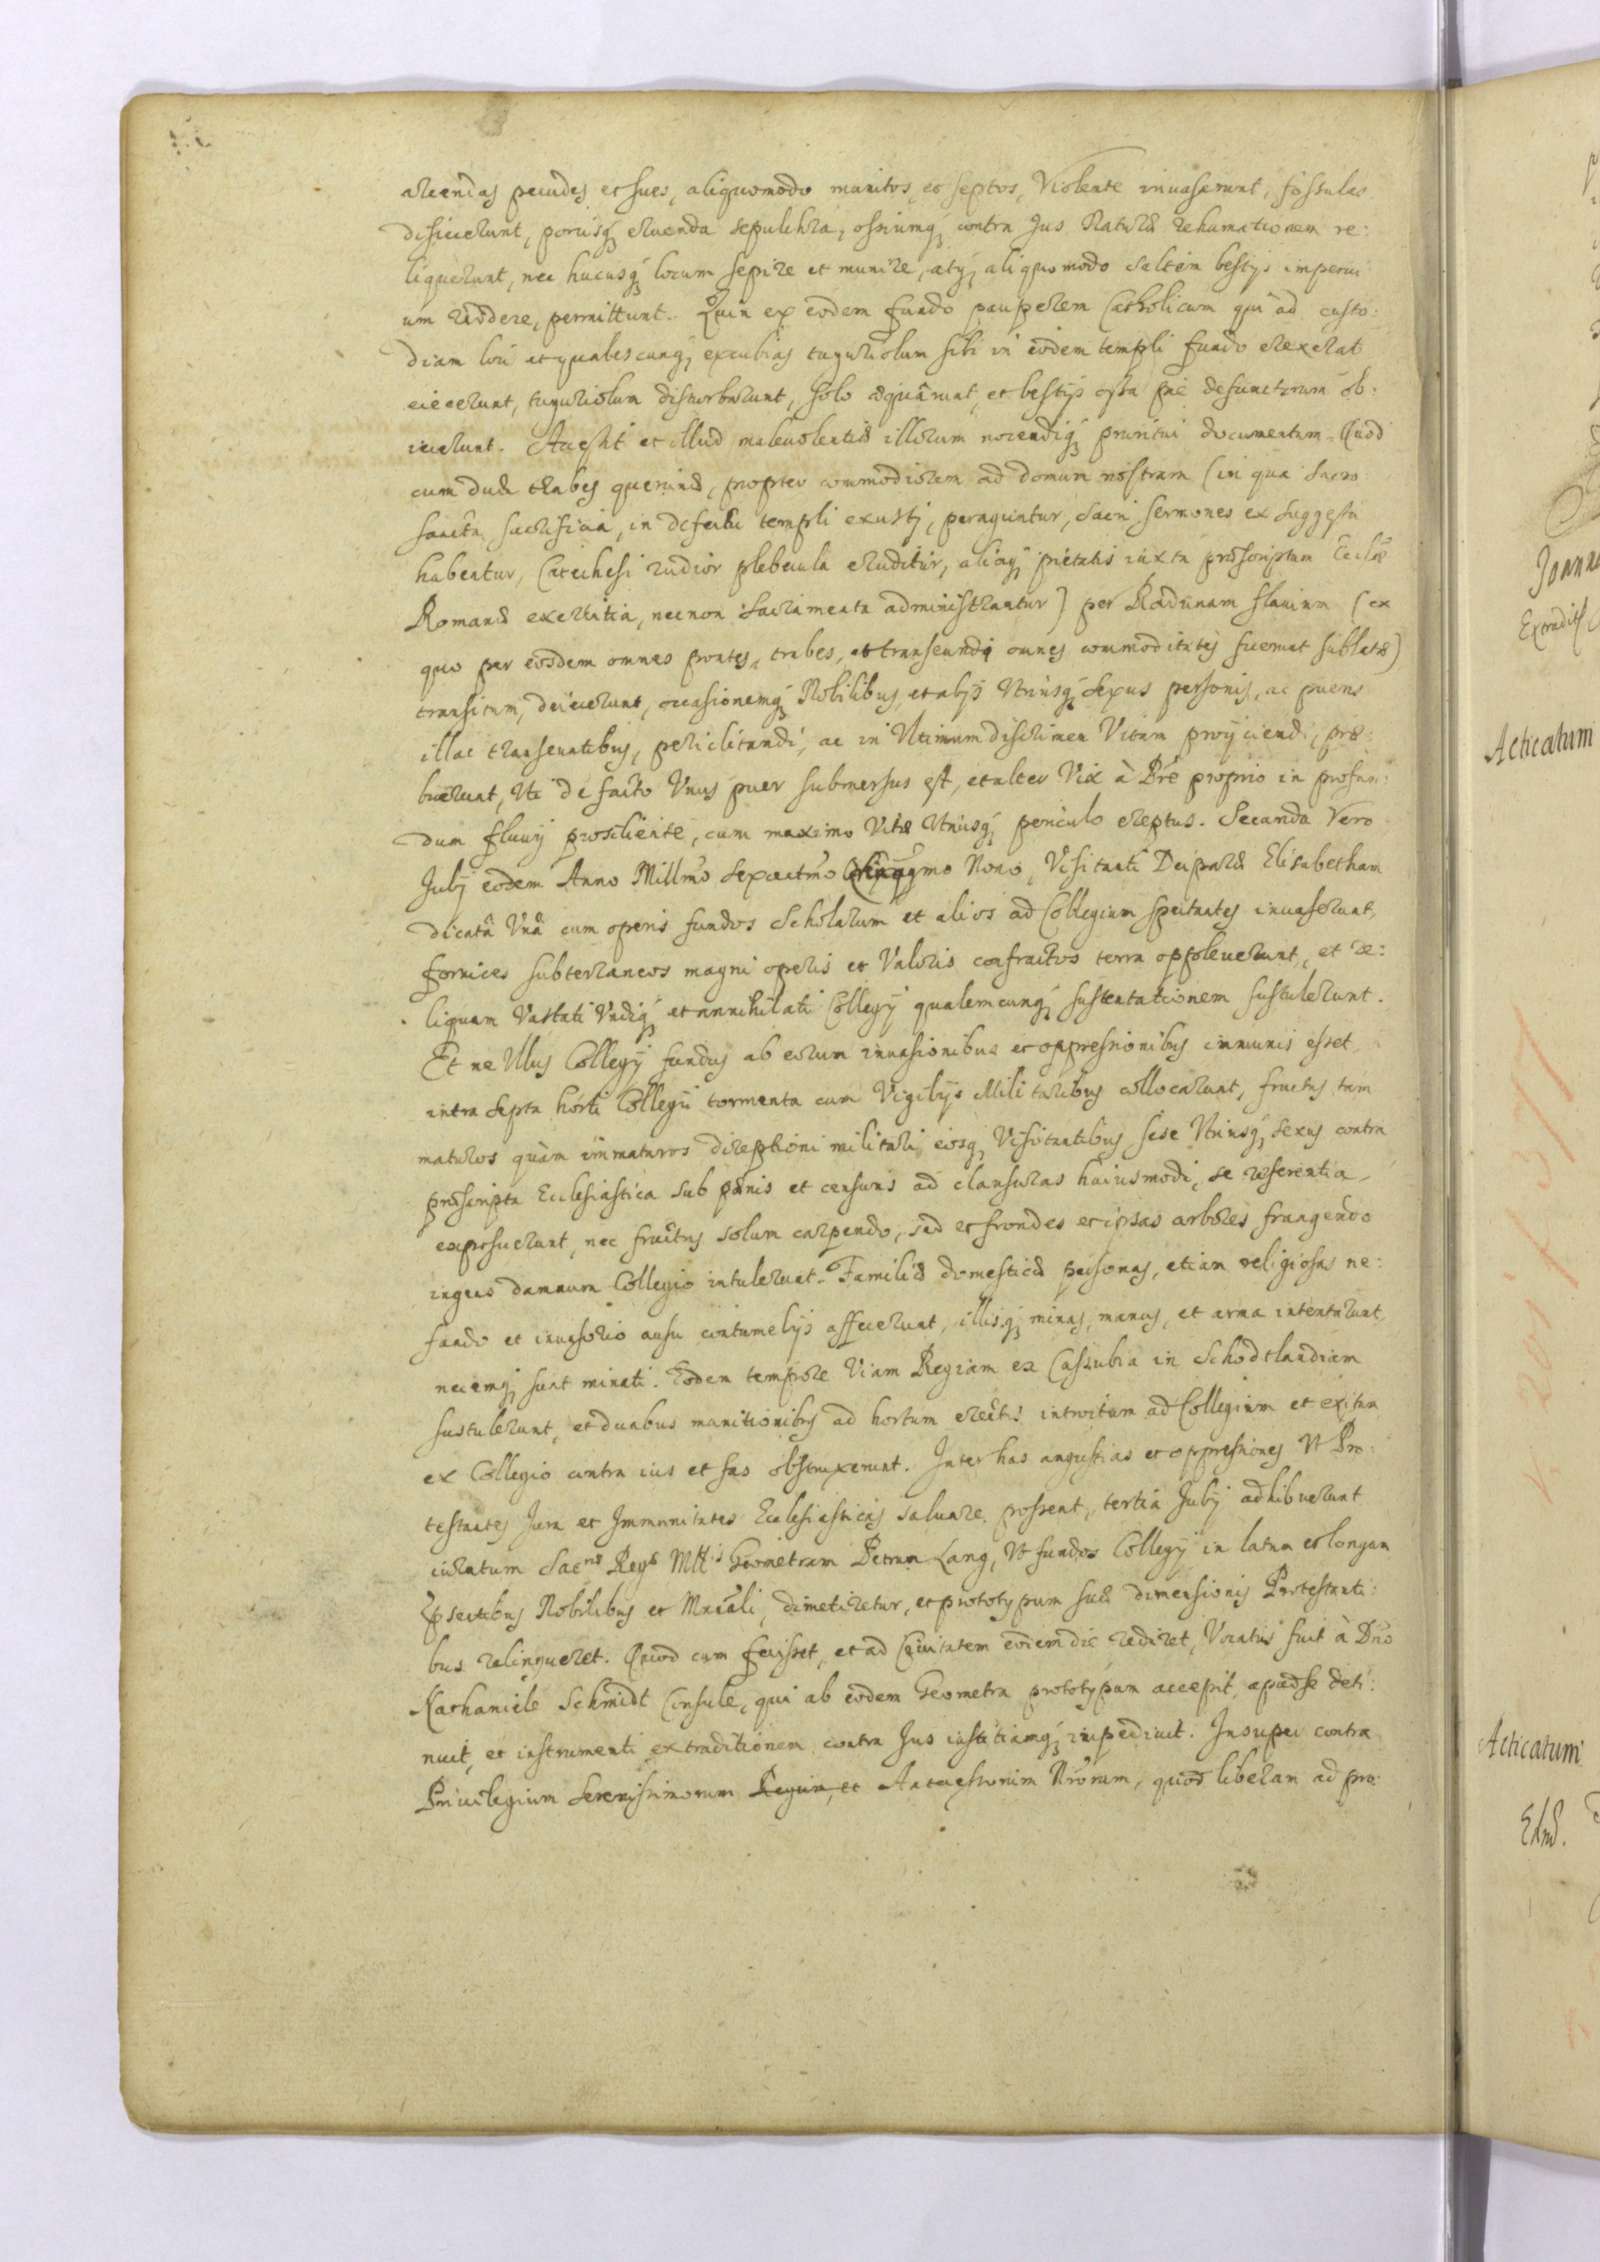 arcendas pecudes et sues, aliquomodo munitos, et septos, Violente inuaserunt, fossulas
disiecerunt, porcisq́ eruenda sepulchra, ossiumq́ contra Jus Naturæ rehumationem re:
liquerunt, nec hucusq́ locum sepire et munire, atq́ aliquomodo saltem bestijs imperui
um reddere, permittunt. Quin ex eodem fundo pauperem Catholicum qui ad custo:
diam loci et qualescunq́ excubias tuguriolum sibi in eodem templi fundo erexerat
eiecerunt, tuguriolum disturbarunt, solo æquârunt, et bestijs ossa pie defunctorum ob:
iecerunt. Accessit et illud maleuolentiæ illorum nocendiq́ pruritui documentum. Quod
cum duæ trabes quernæ, propter commodiorem ad domum nostram (in qua sacro
sancta sacrificia, in defectu templi exusti, peraguntur, sacri sermones ex suggestu
habentur, Catechesi rudior plebecula eruditur, aliaq́ pietatis iuxta præscriptum Ecclæ
Romanæ exercitia, necnon Sacramenta administrantur) per Radunam fluuium (ex
quo per eosdem omnes pontes, trabes, et transeundi omnes commoditates fuerunt sublatæ)
transitum, deiecerunt, occasionemq́ Nobilibus, et alijs Vtriusq́ Sexus personis, ac pueris
illac transeuntibus, periclitandi, ac in Vltimum discrimen Vitam proijciendi, præ:
buerunt, Vti de facto Vnus puer submersus est, et alter Vix à Pre proprio in profun:
dum fluuij prosiliente, cum maximo Vitæ Vtriusq́ periculo ereptus. Secunda Vero
Julij eodem Anno Millmo Sexcentmo mo Nono, Visitanti Deiparæ Elisabetham
dicatâ Vnâ cum operis fundos Scholarum et alios ad Collegium spectantes inuaserunt,
fornices subterraneos magni operis et Valoris confractos terra oppleuerunt, et re:
liquam Vastati Vndiq́ et annihilati Collegij qualemcunq́ sustentationem sustulerunt.
Et ne Vllus Collegij fundus ab eorum inuasionibus et oppressionibus immunis esset
intra septa horti Collegij tormenta cum Vigilijs Militaribus collocarunt, fructus tam
maturos quàm immaturos direptioni militari, eosq́ Visitantibus sese Vtriusq́ sexus contra
præscripta Ecclesiastica sub pœnis et censuris ad clausuras huiusmodi, se referentia
exposuerunt, nec fructus solum carpendo, sed et frondes et ipsas arbores frangendo
ingens damnum Collegio intulerunt. Familiæ domesticæ personas, etiam religiosas ne:
fando et inuasorio ausu contumelijs affecerunt, illisq́ minas, manus, et arma intentarunt
necemq́ sunt minati. Eodem tempore Viam Regiam ex Cassubia in Schodtlandiam
sustulerunt, et duabus munitionibus ad hortum erectis introitum ad Collegium et exitum
ex Collegio contra ius et fas obstruxerunt. Inter has angustias et oppressiones Vt Pro:
testantes Jura et Immunitates Ecclesiasticas saluare possent, tertia Julij adhibuerunt
iuratum Sacræ Regæ Mttis Geometram Petrum Lang, Vt fundos Collegij in latum et longum
Præsentibus Nobilibus et Mnrāli, dimetiretur, et prototypum suæ dimensionis Protestanti:
bus relinqueret. Quod cum fecisset, et ad Ciuitatem eodem die rediret, Vocatus fuit à Dno
Nathaniele Schmidt Consule, qui ab eodem Geometra prototypum accepit, apud se deti:
nuit, et instrumenti extraditionem contra Jus iustitiamq́ impediuit. Insuper contra
Priuilegium Serenissimorum Regum, et Antecessorum Nrorum, quod liberam ad pro:
Joann
Extradit
Acticatum
Acticatum